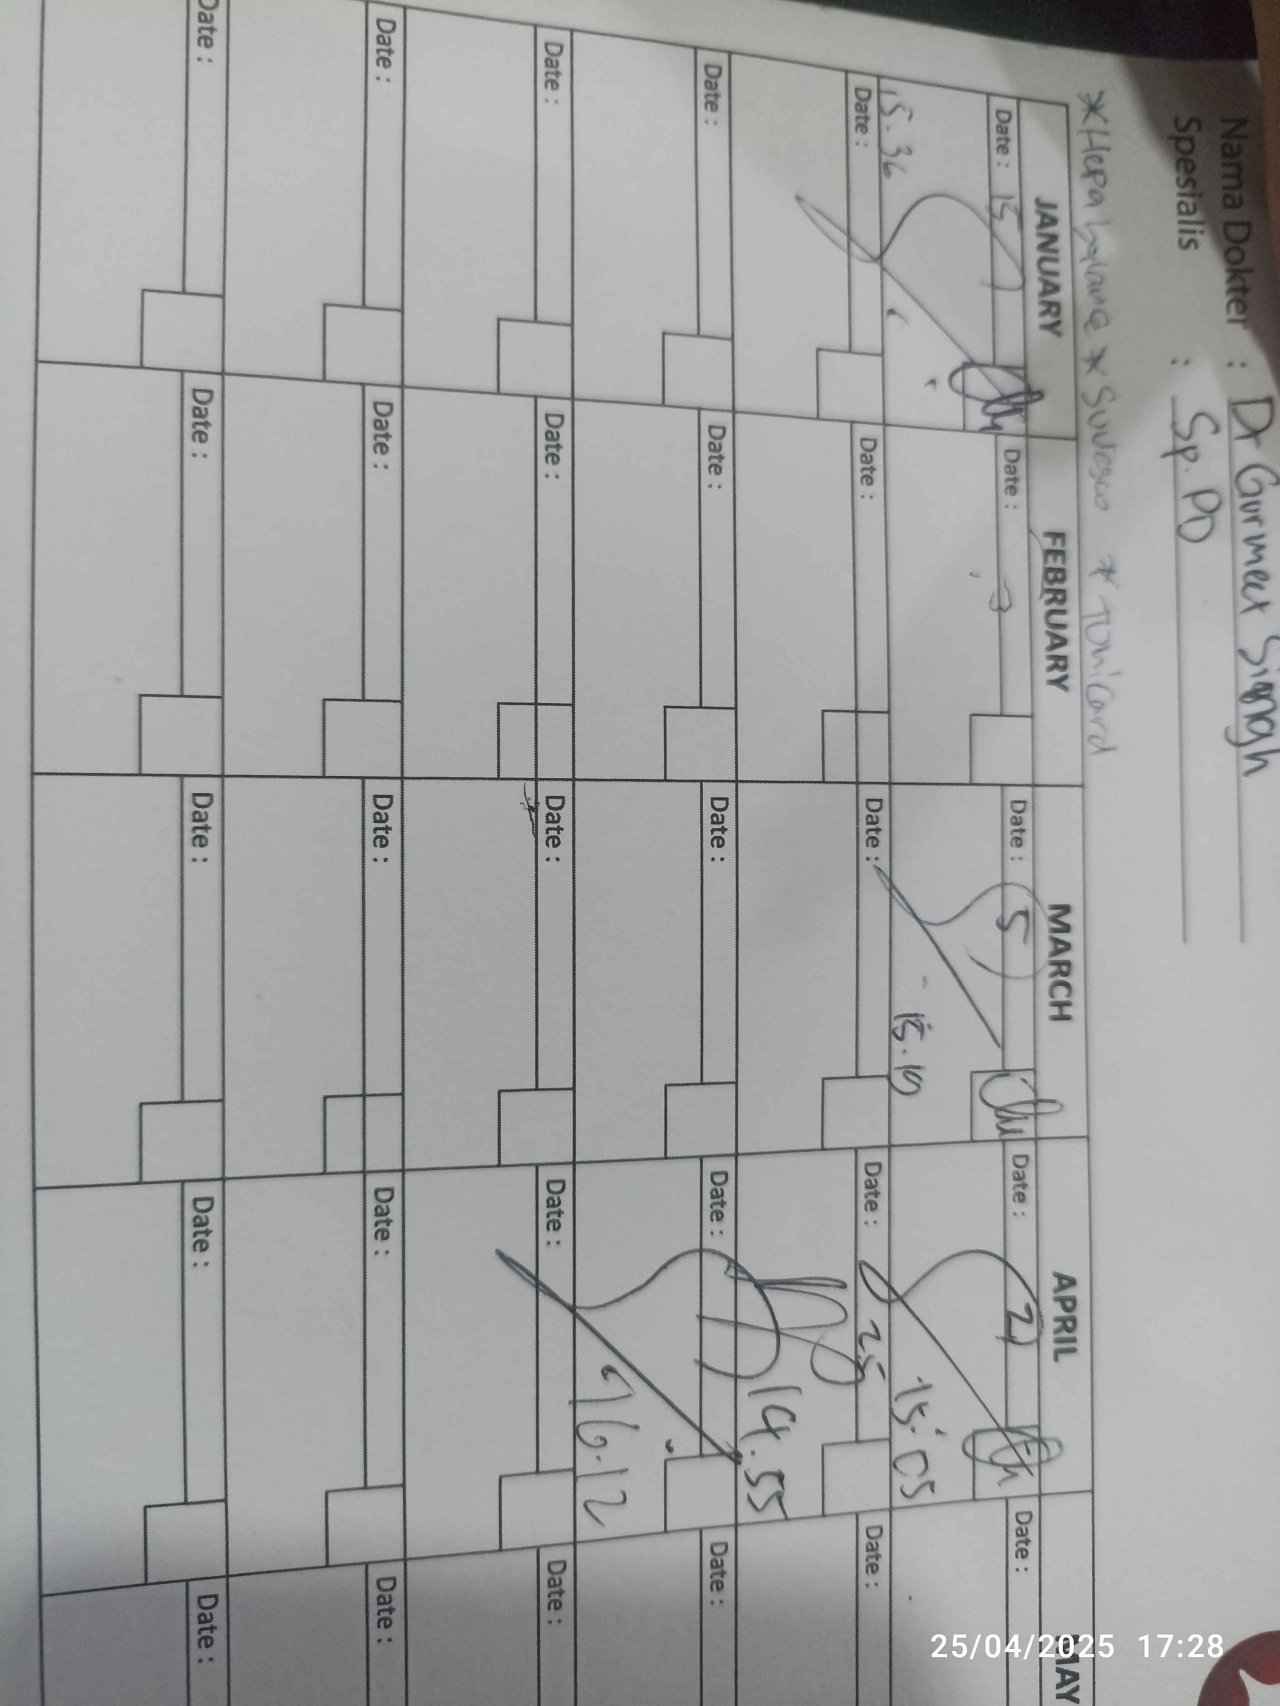 Nama Dokter : Dr Gurmeet Singh
Spesialis : Sp. PD
* Hepa * Suvesco * Tonicard
JANUARY FEBRUARY MARCH APRIL MAY
Date : 15 Date : 3 Date : 5 Date : 21 Date :
15.36 15.19 15.05
Date : Date : Date : Date : 25 Date :
14.55
Date : Date : Date : Date : Date :
16.12
Date : Date : Date : Date : Date :
Date : Date : Date : Date : Date :
Date : Date : Date : Date : Date :
25/04/2025 17:28